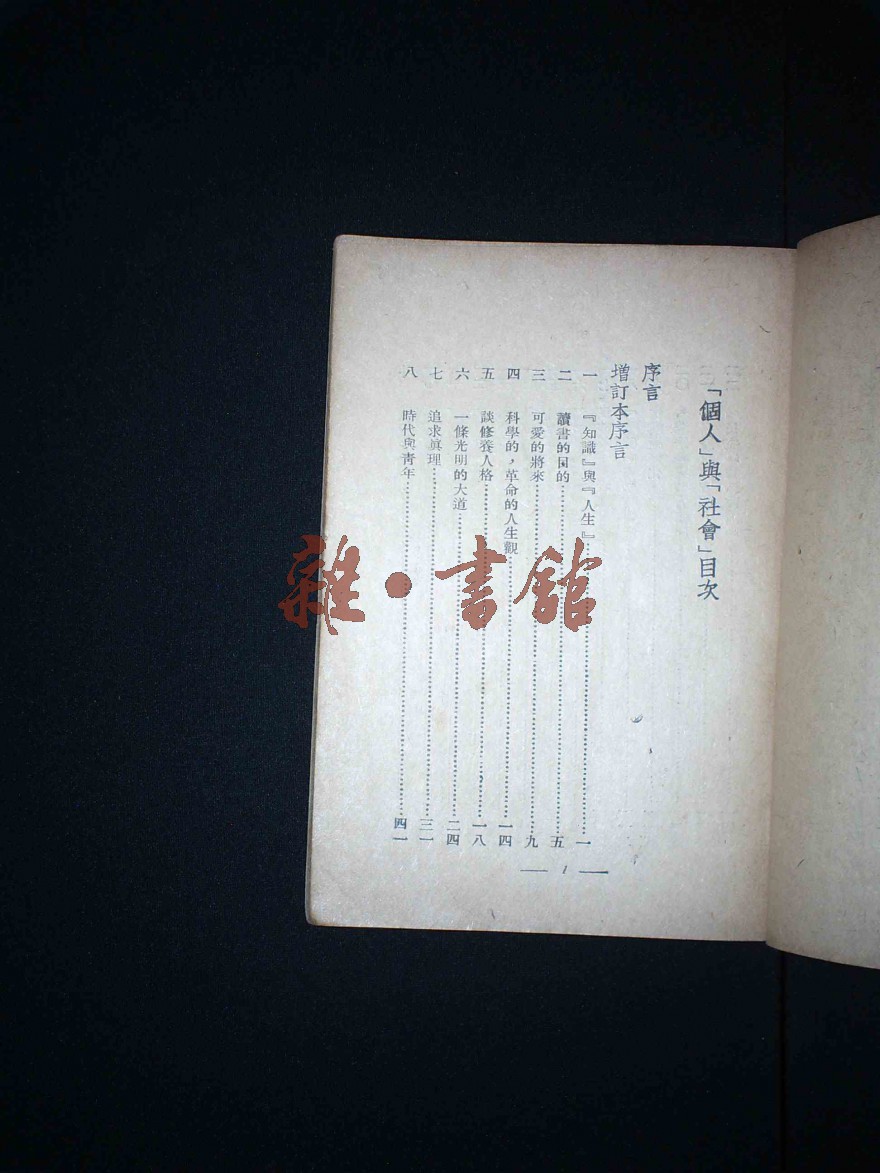 「個人」與「社會」目次
序言
增訂本序言
一　『知識』與『人生』……一
二　讀書的目的……五
三　可愛的將來……九
四　科學的，革命的人生觀……一四
五　談修養人格……一八
六　一條光明的大道……二四
七　追求眞理……三一
八　時代與靑年……四一
— 1 —
雜·書館